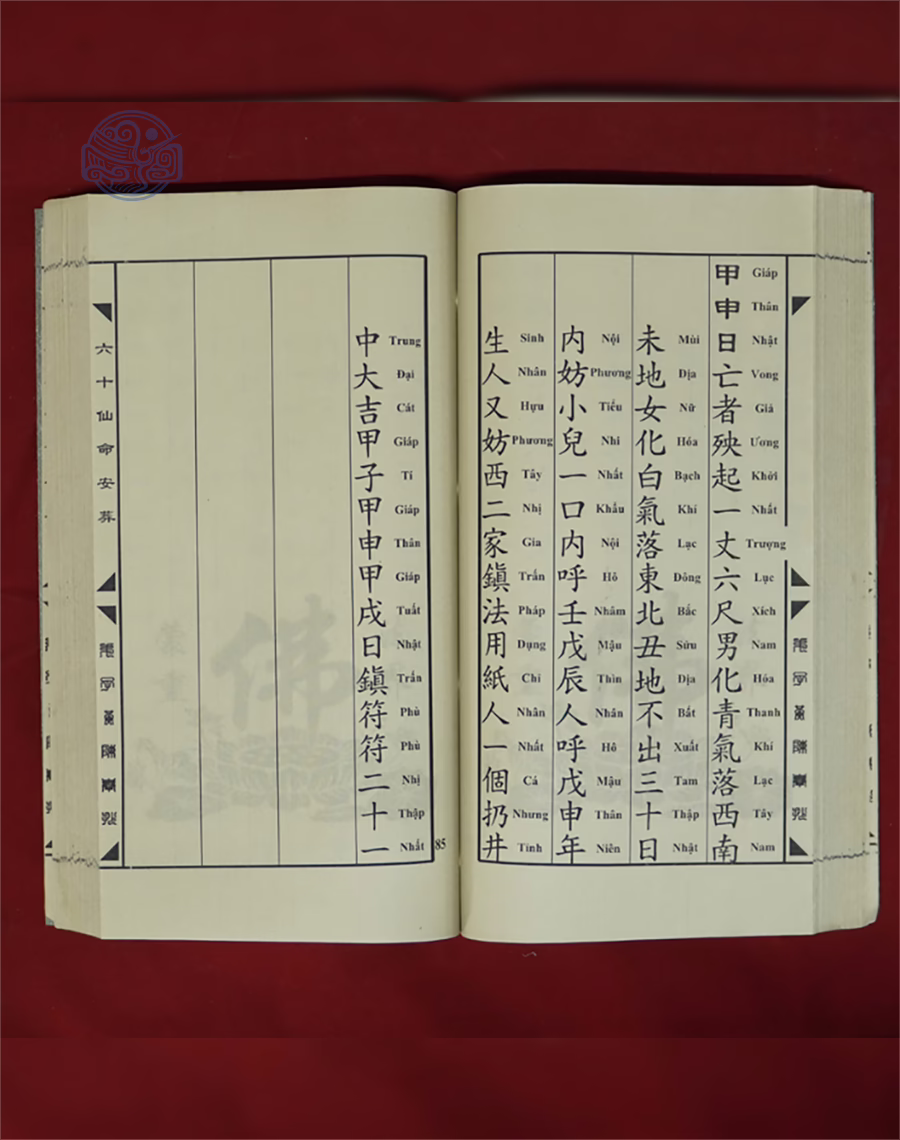 甲申日亡者殃起一丈六尺男化青氣落西南
Giáp Thân Nhật Vong Giả Ương Khởi Nhất Trượng Lục Xích Nam Hóa Thanh Khí Lạc Tây Nam
未地女化白氣落東北丑地不出三十日
Mùi Địa Nữ Hóa Bạch Khí Lạc Đông Bắc Sửu Địa Bất Xuất Tam Thập Nhật
内妨小兒一口内呼壬戊辰人呼戊申年
Nội Phương Tiểu Nhi Nhất Khẩu Nội Hô Nhâm Mậu Thìn Nhân Hô Mậu Thân Niên
生人又妨西二家鎮法用紙人一個扔井
Sinh Nhân Hựu Phương Tây Nhị Gia Trấn Pháp Dụng Chỉ Nhân Nhất Cá Nhưng Tỉnh
中大吉甲子甲申甲戌日鎮符符二十一
Trung Đại Cát Giáp Tí Giáp Thân Giáp Tuất Nhật Trấn Phù Phù Nhị Thập Nhất
85
六十仙命安葬
佛